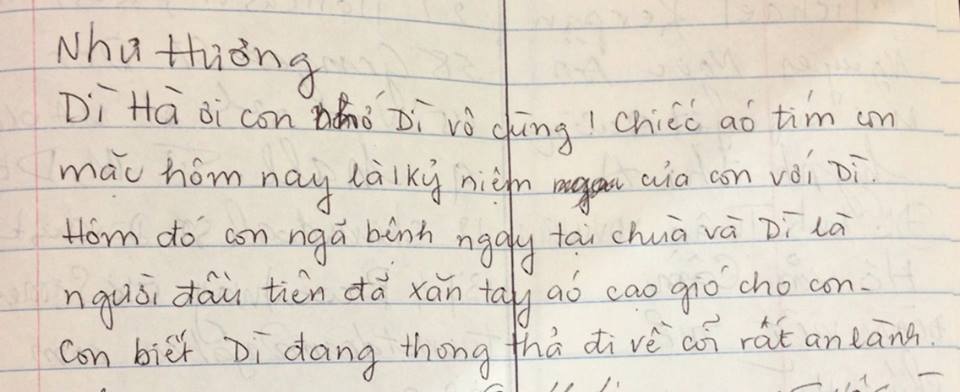 Như thưởng
Dì Hà ơi con nhớ Dì vô cùng! Chiếc aó tím con
mặc hôm nay là 1 kỷ niệm của con với Dì.
Hôm đó con ngã bênh ngay tại chuà và Dì là
người đầu tiên đã xăn tay aó cạo gió cho con.
Con biết Dì đang thong thả đi về cõi rất an lành.